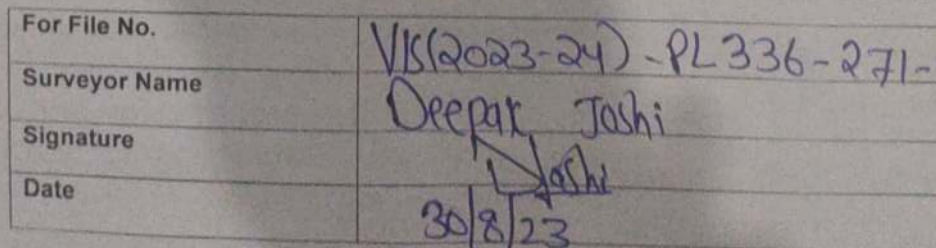 For File No. VIS(2023-24)-PL336-271-
Surveyor Name Deepak Joshi
Signature DJoshi
Date 30/8/23